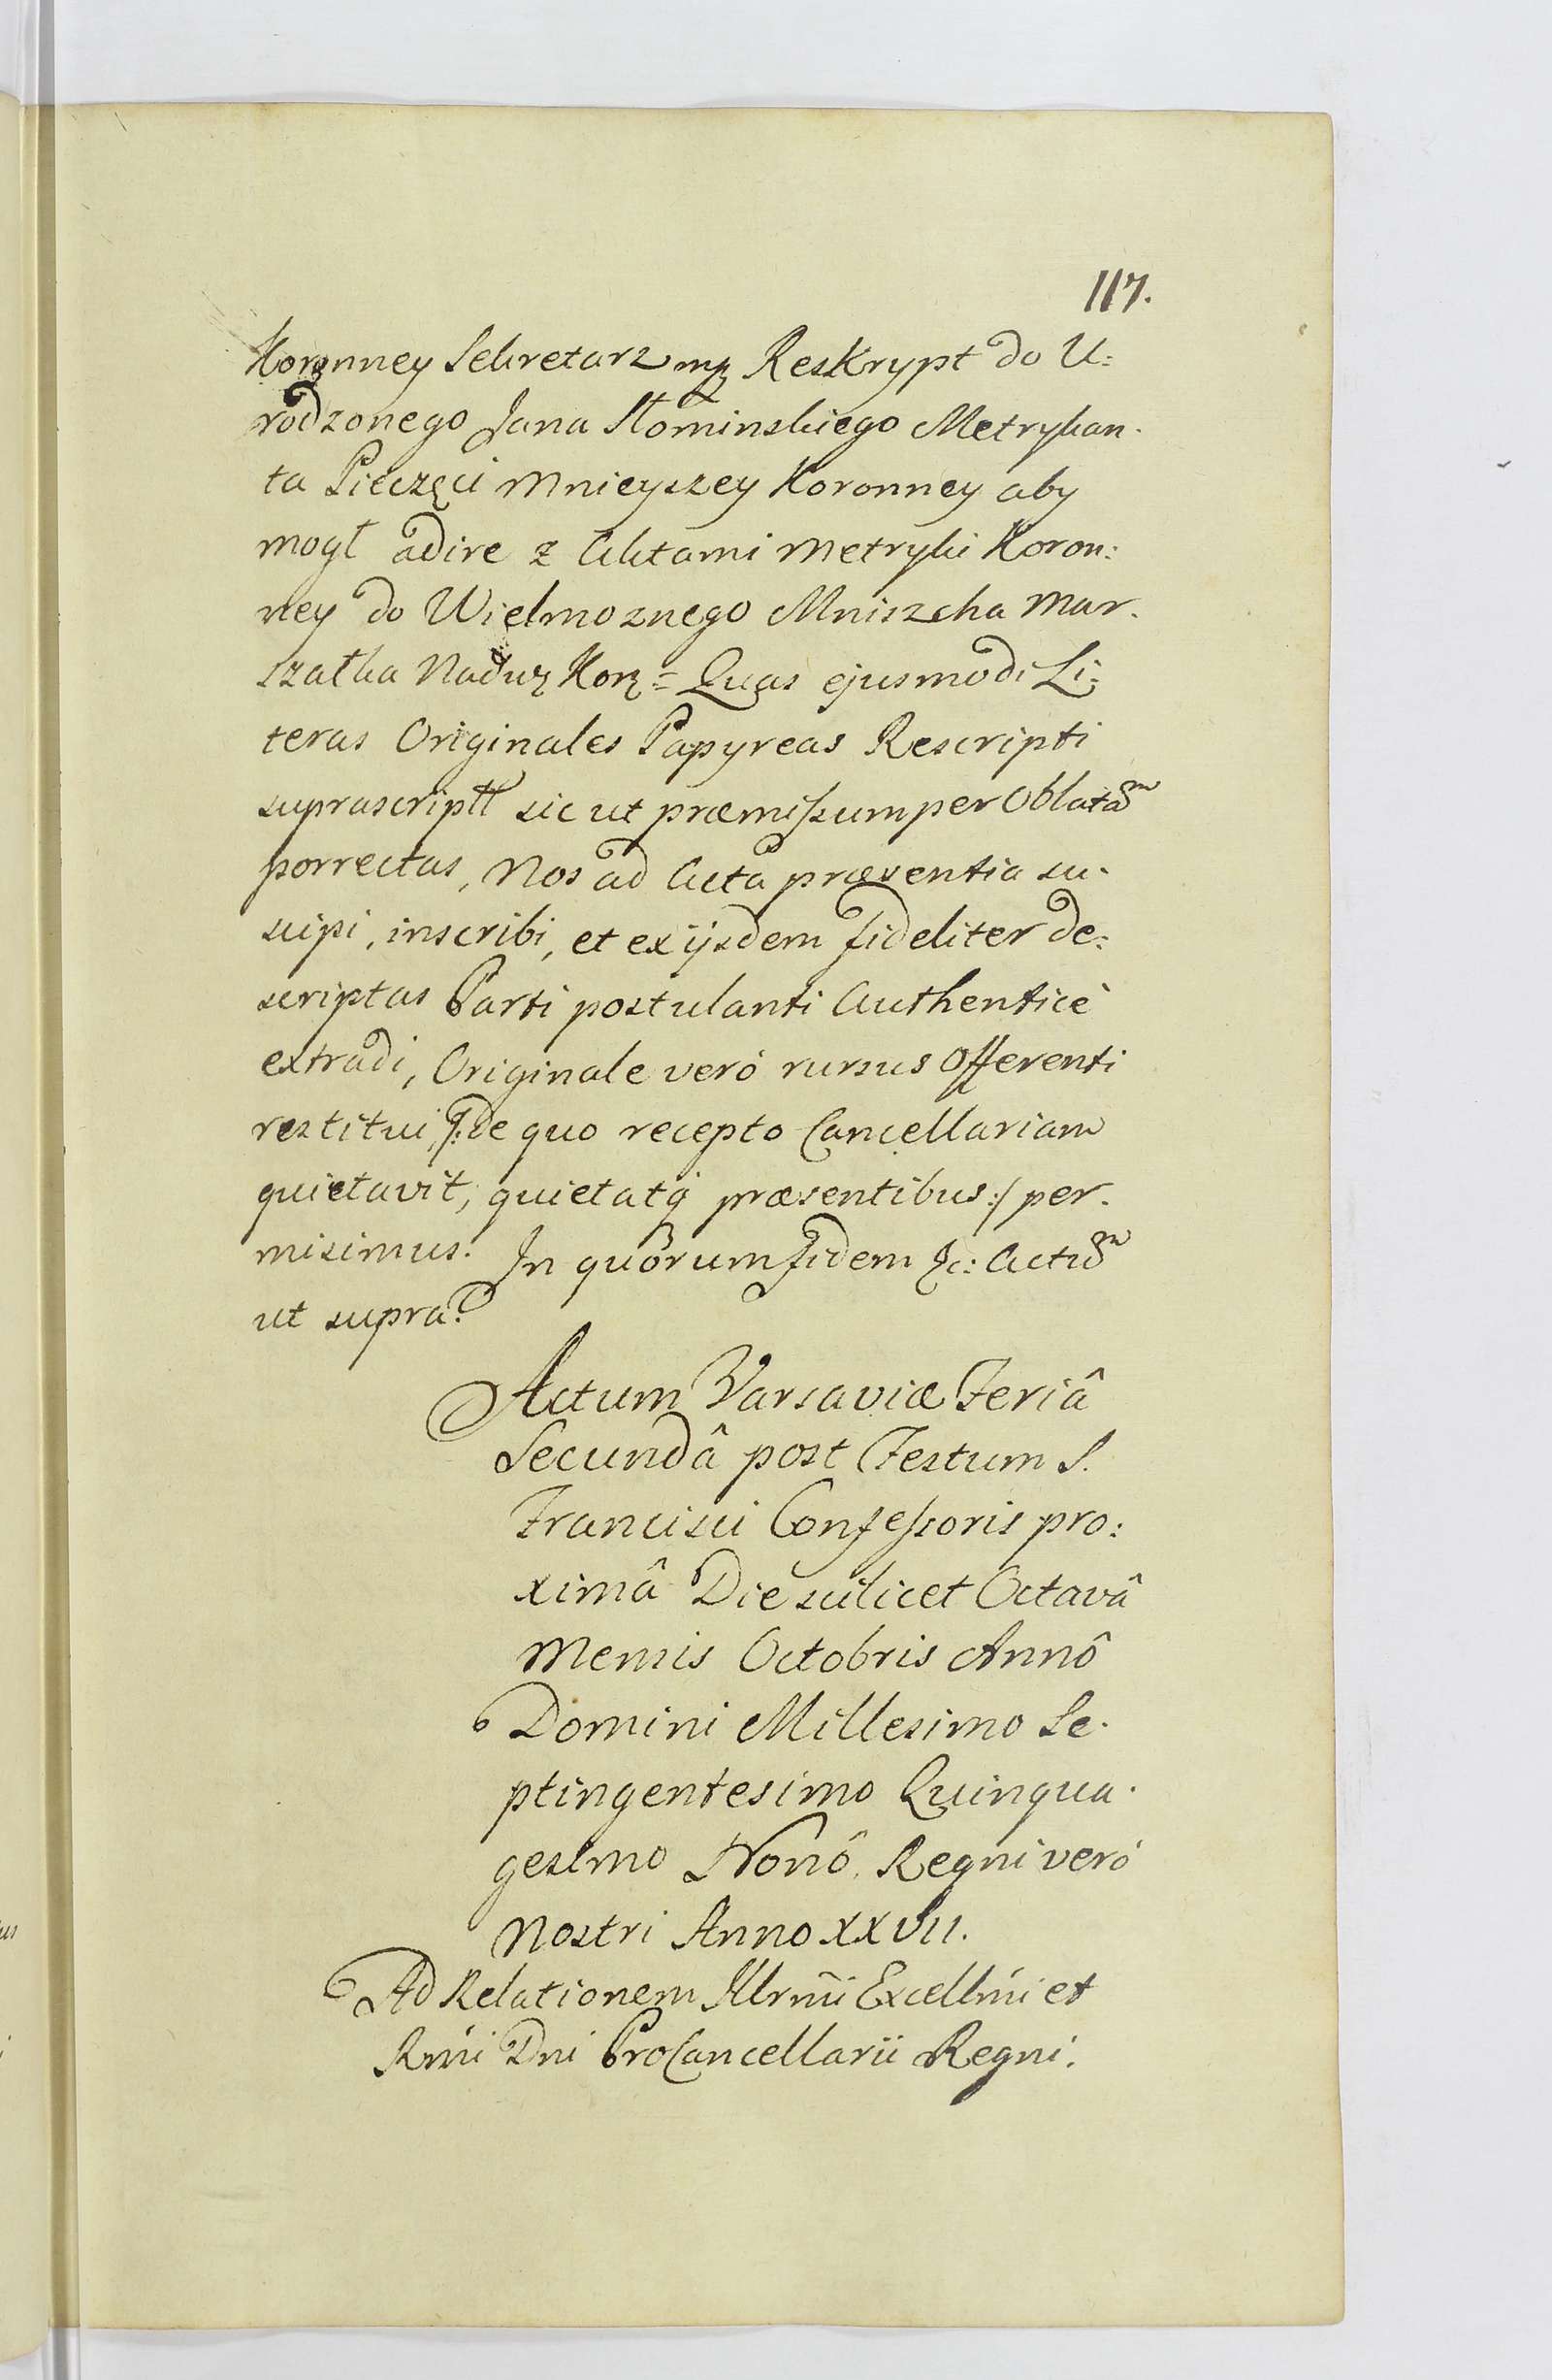 117.
Koronney Sekretarz mp Reskrypt do U:
rodzonego Jana Słominskiego Metrykan.
ta Pieczęci Mnieyszey Koronney aby
mogł adire z Aktami Metryki Koron:
ney do Wielmoznego Mniszcha Mar.
szałka Nadwz Korz = Quas ejusmodi Li:
teras Originales Papyreas Rescripti
suprascripti sic ut præmissum per Oblatam
porrectas, Nos ad Acta præsentia su.
scipi, inscribi, et ex ijsdem fideliter de:
scriptas Parti postulanti Authenticè
extradi, Originale veró rursus Offerenti
restitui, /: de quo recepto Cancellariam
quietavit, quietatq præsentibus :/ per.
misimus. In quorum fidem &c: Actum
ut supra.
Actum Varsaviæ Feriâ
Secundâ post Festum S.
Francisci Confessoris pro:
ximâ Die scilicet Octavâ
Mensis Octobris Annô
Domini Millesimo Se.
ptingentesimo Quinqua.
gesimo Nonô. Regni veró
Nostri Anno XXVII.
Ad Relationem Illrmi Excellmi et
Rmi Dni ProCancellarii Regni.